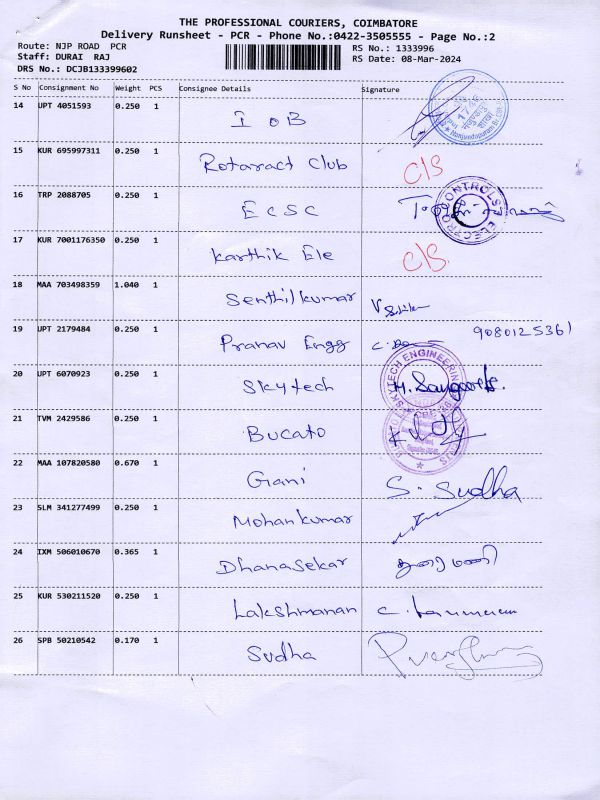 THE PROFESSIONAL COURIERS, COIMBATORE
Delivery Runsheet - PCR - Phone No.:0422-3505555 - Page No.:2
Route: NJP ROAD PCR RS No.: 1333996
Staff: DURAI RAJ RS Date: 08-Mar-2024
DRS No.: DCJB133399602
S No Consignment No Weight PCS Consignee Details Signature
14 UPT 4051593 0.250 1 IOB
15 KUR 695997311 0.250 1 Rotaract Club C/S
16 TRP 2088705 0.250 1 ECSC
17 KUR 7001176350 0.250 1 Karthik Ele C/S.
18 MAA 703498359 1.040 1 Senthilkumar
19 UPT 2179484 0.250 1 Pranav Engg 9080125361
20 UPT 6070923 0.250 1 Skytech
21 TVM 2429586 0.250 1 Bucato
22 MAA 107820580 0.670 1 Gani S. Sudha
23 SLM 341277499 0.250 1 Mohankumar
24 IXM 506010670 0.365 1 Dhanasekar
25 KUR 530211520 0.250 1 Lakshmanan
26 SPB 50210542 0.170 1 Sudha